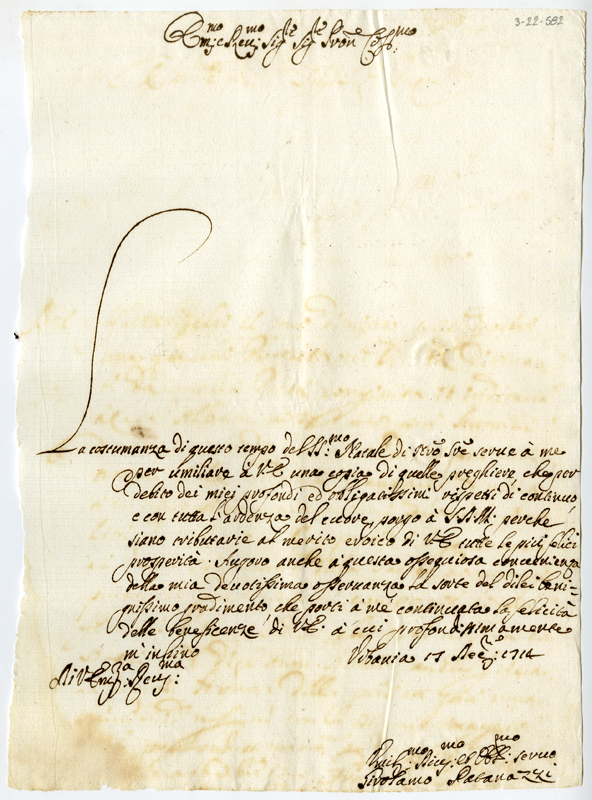 3-22-592
Em:mo e Rev:mo Sig:re Sig:re Pron:e Col:mo
La costumanza di questo tempo del SS:mo Natale di Nro Sre serve à me
per umiliare à V.E. una copia di quelle preghiere, che per
debito dei miei profondi ed obligatissimi rispetti di continuo,
e con tutta l'ardenza del cuore, porgo à S.D.M. perche
siano tributarie al merito eroico di V.E. tutte le più felici
prosperità. Imploro anche à questa ossequiosa
della mia devotissima osservanza la sorte del di lei beni-
gnissimo gradimento che porti à me continuata la felicità
delle beneficenze di V.E. à cui profondissimamente
m'inchino Urbania 17 1714
Di V. Em:za Rev:ma
Um:mo Dev:mo et Obl:mo servo
Girolamo